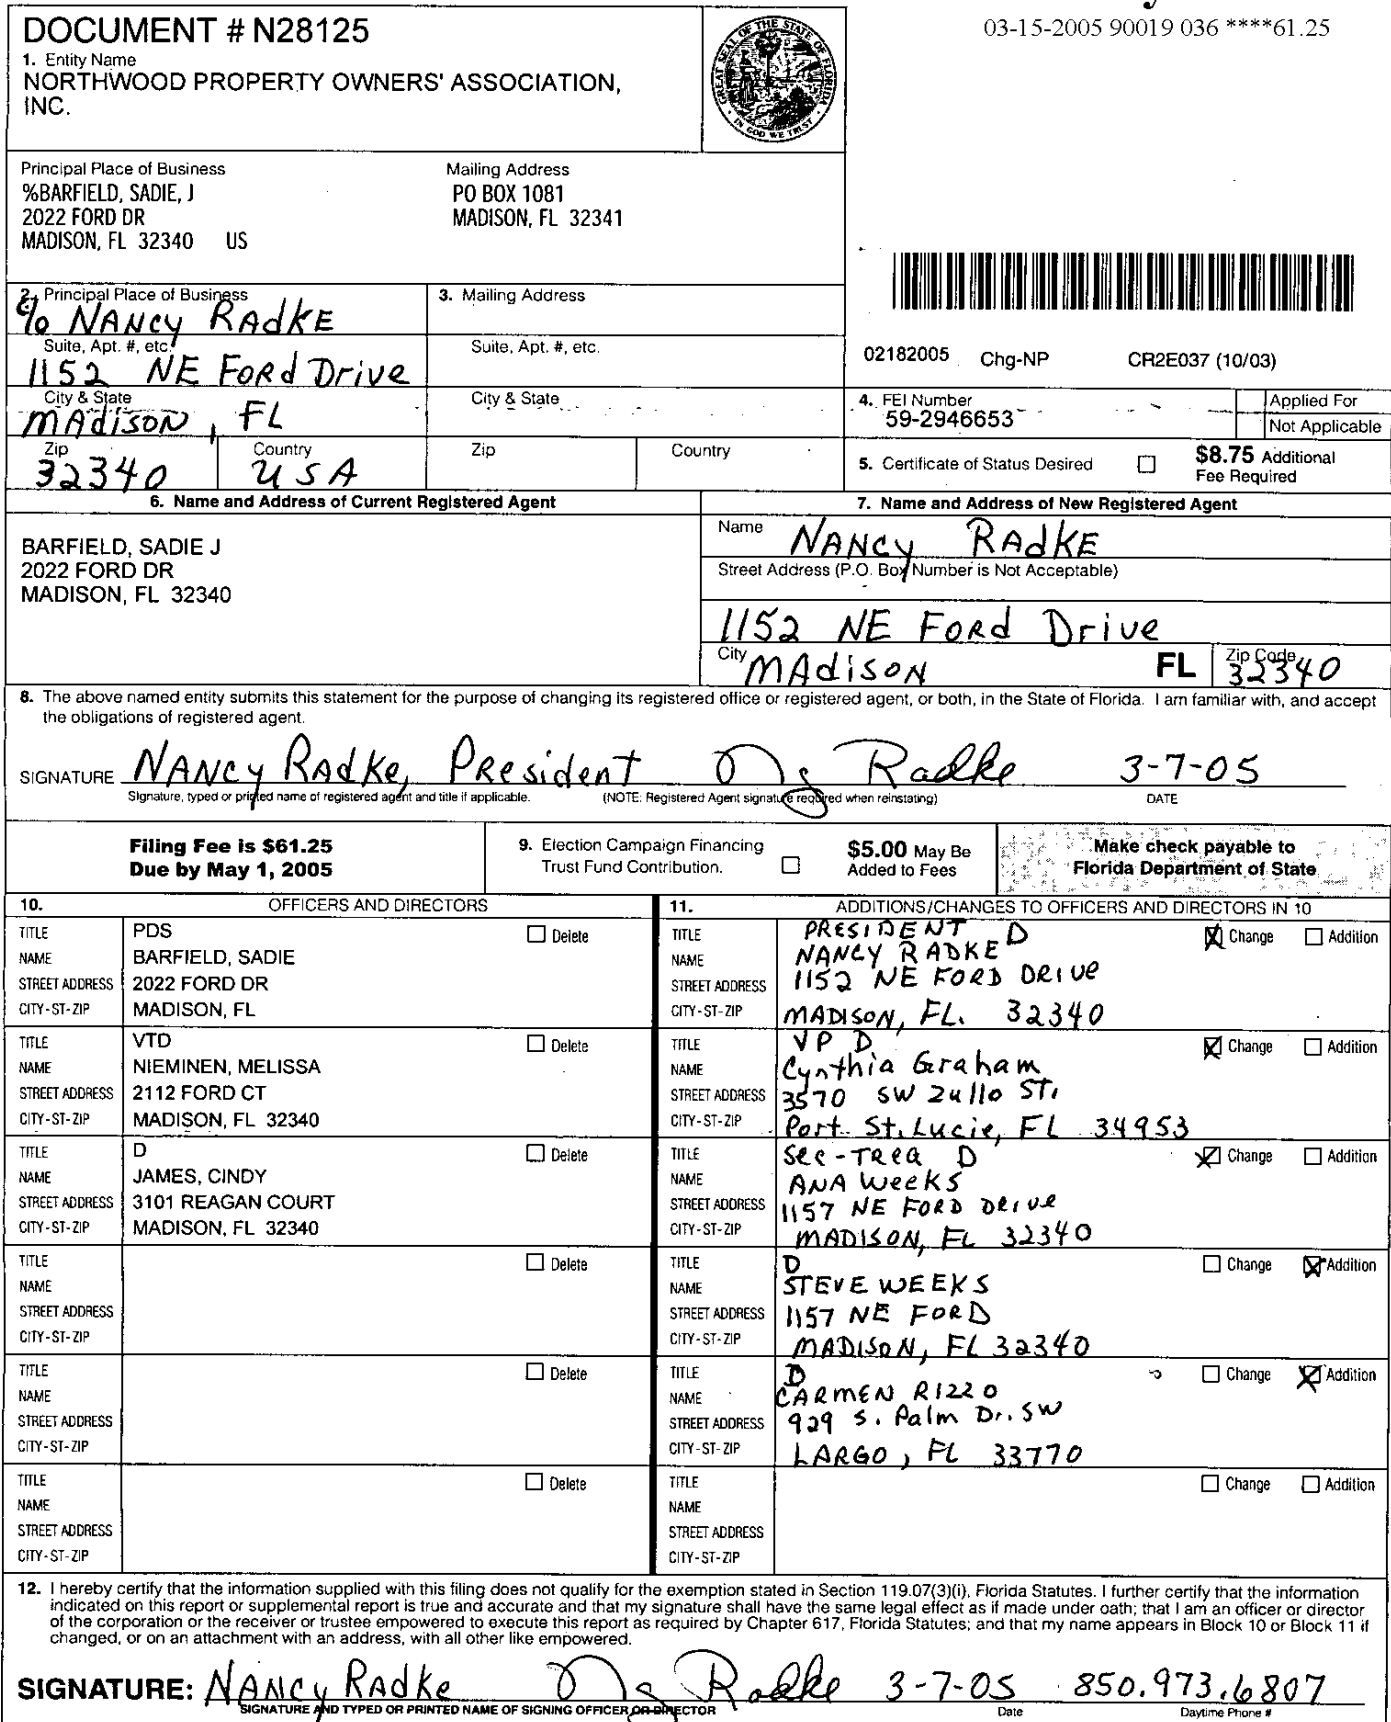 03-15-2005 90019 036 ****61.25
DOCUMENT # N28125
1. Entity Name
NORTHWOOD PROPERTY OWNERS' ASSOCIATION,
INC.
GREAT SEAL OF THE STATE OF FLORIDA
IN GOD WE TRUST
Principal Place of Business
%BARFIELD, SADIE, J
2022 FORD DR
MADISON, FL 32340 US
Mailing Address
PO BOX 1081
MADISON, FL 32341
2. Principal Place of Business
% NANCY RAdKE
Suite, Apt. #, etc.
1152 NE Ford Drive
City & State
MAdison, FL
Zip
32340
Country
USA
3. Mailing Address
Suite, Apt. #, etc.
City & State
Zip
Country
02182005 Chg-NP CR2E037 (10/03)
4. FEI Number
59-2946653
Applied For
Not Applicable
5. Certificate of Status Desired
$8.75 Additional
Fee Required
6. Name and Address of Current Registered Agent
BARFIELD, SADIE J
2022 FORD DR
MADISON, FL 32340
7. Name and Address of New Registered Agent
Name NANCY RAdKE
Street Address (P.O. Box Number is Not Acceptable)
1152 NE Ford Drive
City MAdison FL Zip Code 32340
8. The above named entity submits this statement for the purpose of changing its registered office or registered agent, or both, in the State of Florida. I am familiar with, and accept
the obligations of registered agent.
SIGNATURE NANCY RAdKe, PResident Radke 3-7-05
Signature, typed or printed name of registered agent and title if applicable. (NOTE: Registered Agent signature required when reinstating) DATE
Filing Fee is $61.25
Due by May 1, 2005
9. Election Campaign Financing
Trust Fund Contribution.
$5.00 May Be
Added to Fees
Make check payable to
Florida Department of State
10. OFFICERS AND DIRECTORS
TITLE PDS Delete
NAME BARFIELD, SADIE
STREET ADDRESS 2022 FORD DR
CITY-ST-ZIP MADISON, FL
TITLE VTD Delete
NAME NIEMINEN, MELISSA
STREET ADDRESS 2112 FORD CT
CITY-ST-ZIP MADISON, FL 32340
TITLE D Delete
NAME JAMES, CINDY
STREET ADDRESS 3101 REAGAN COURT
CITY-ST-ZIP MADISON, FL 32340
TITLE Delete
NAME
STREET ADDRESS
CITY-ST-ZIP
TITLE Delete
NAME
STREET ADDRESS
CITY-ST-ZIP
TITLE Delete
NAME
STREET ADDRESS
CITY-ST-ZIP
11. ADDITIONS/CHANGES TO OFFICERS AND DIRECTORS IN 10
TITLE PRESIDENT D Change Addition
NAME NANCY RADKE
STREET ADDRESS 1152 NE FORD DRIVE
CITY-ST-ZIP MADISON, FL. 32340
TITLE VP D Change Addition
NAME Cynthia Graham
STREET ADDRESS 3570 SW Zullo ST.
CITY-ST-ZIP Port St. Lucie, FL 34953
TITLE Sec-Trea D Change Addition
NAME ANA WeeKS
STREET ADDRESS 1157 NE FORD DRIVE
CITY-ST-ZIP MADISON, FL 32340
TITLE D Change Addition
NAME STEVE WEEKS
STREET ADDRESS 1157 NE FORD
CITY-ST-ZIP MADISON, FL 32340
TITLE D Change Addition
NAME CARMEN RIZZO
STREET ADDRESS 929 S. Palm Dr. SW
CITY-ST-ZIP LARGO, FL 33770
TITLE Change Addition
NAME
STREET ADDRESS
CITY-ST-ZIP
12. I hereby certify that the information supplied with this filing does not qualify for the exemption stated in Section 119.07(3)(i), Florida Statutes. I further certify that the information
indicated on this report or supplemental report is true and accurate and that my signature shall have the same legal effect as if made under oath; that I am an officer or director
of the corporation or the receiver or trustee empowered to execute this report as required by Chapter 617, Florida Statutes; and that my name appears in Block 10 or Block 11 if
changed, or on an attachment with an address, with all other like empowered.
SIGNATURE: NANCY RAdKe Radke 3-7-05 850.973.6807
SIGNATURE AND TYPED OR PRINTED NAME OF SIGNING OFFICER OR DIRECTOR Date Daytime Phone #